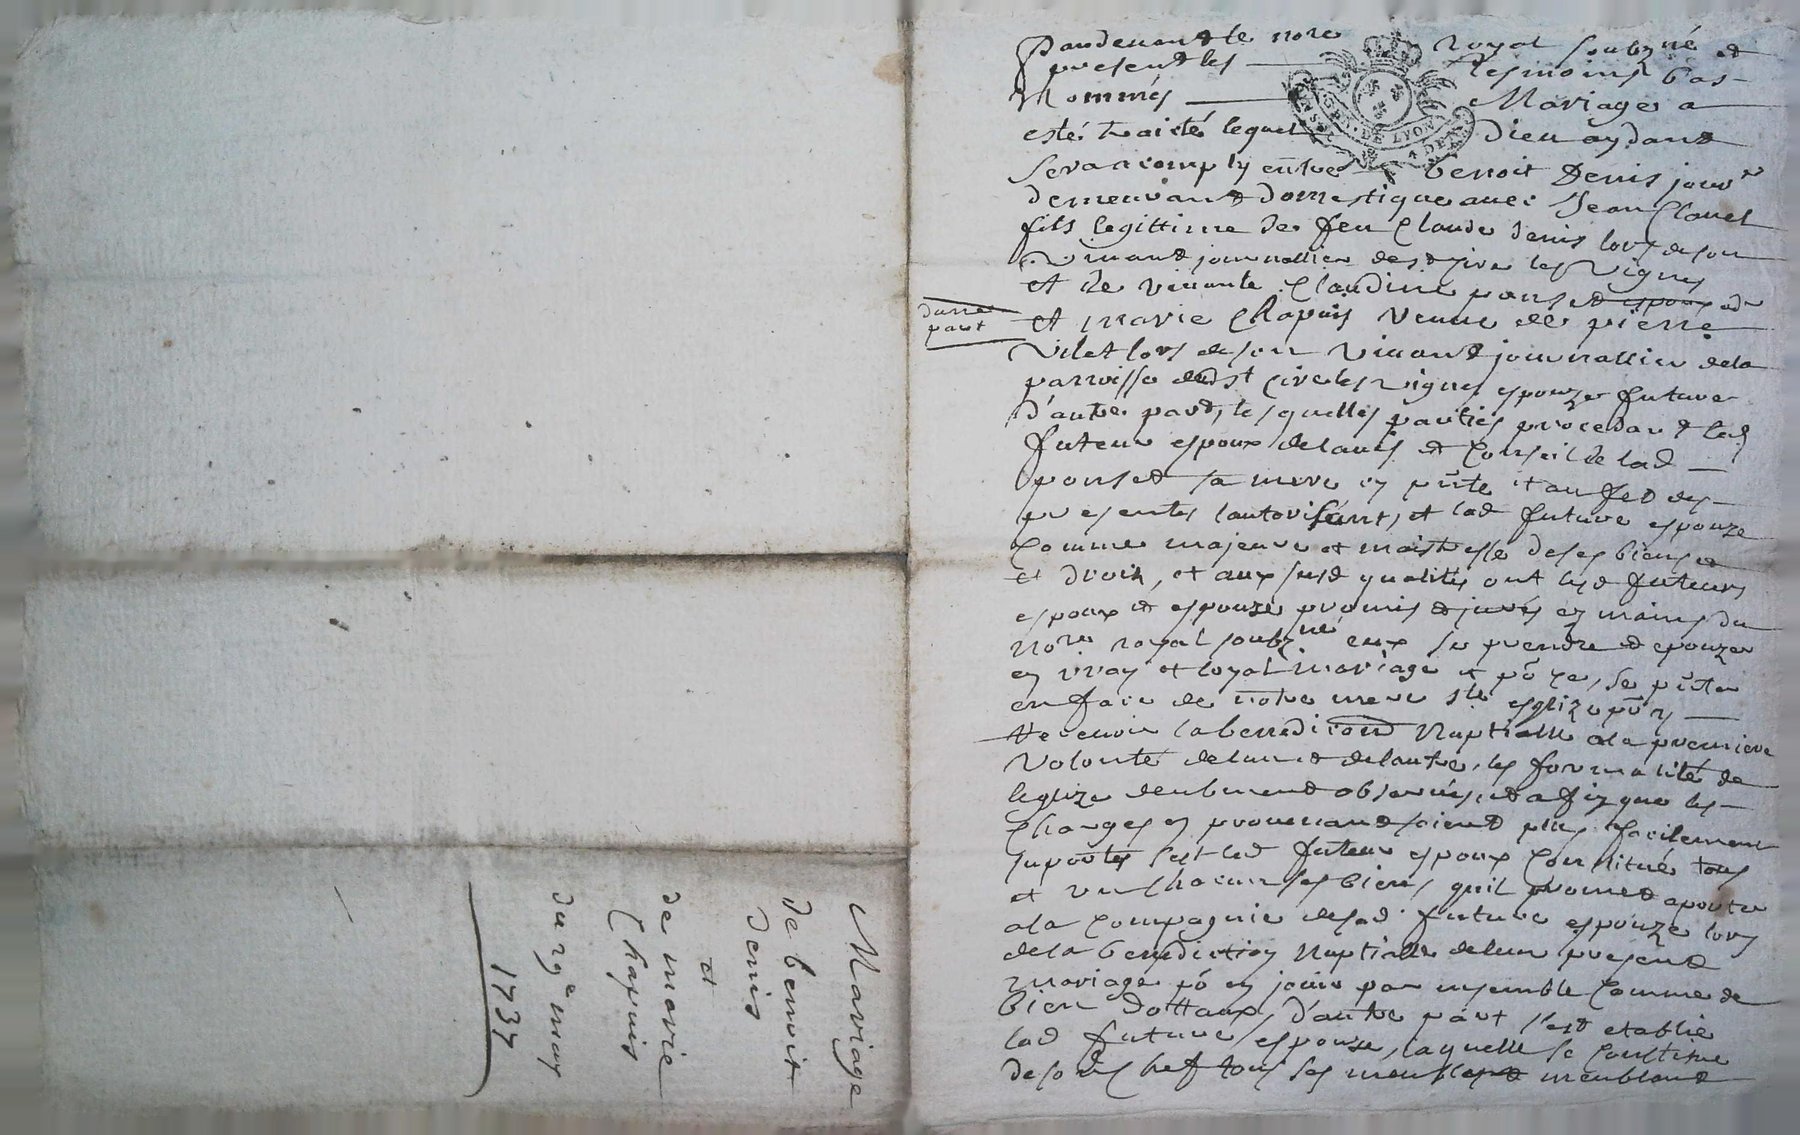 Pardevant le nore royal soubzné et
presend les tesmoins bas
Nommés Mariage a
esté traicté lequel Dieu aydant
sera acomply entre benoit Denis jour
demeurant domestique avec Jean Clauel
fils legittime de feu Claude denis lors de son
vivant journallier de st sire les vignes
et de vivante Claudine ponset
d'une part
et marie Chapuis veuve de pierre
vilet lors de son vivant journallier de la
parroisse dud st Cire les vignes espouze future
d'autre part, lesquelles parties procedant led
futeur espoux de lavis et Conseil de lad
ponset sa mere cy pnte et au fet des
presentes lautorisant, et lad future espouze
Comme majeure et maistresse de ses biens
et droit, et aux susd qualités ont lesd futeurs
espoux et espouze promis et jurés ez mains du
nore royal soubzné eux se prendre et epouzer
en vray et loyal mariage et pour ce, se pnter
en face de notre mere ste esglize pour y
Recevoir la benediction Nuptialle a la premiere
volonté de lun et de lautre, les formalité de
leglize deubment observées, et afin que les
Charges en provenant soient plus facilement
suportés sest led futeur espoux Constitué tous
et un chacun ses biens quil promet aporter
a la Compagnie de sad future espouze lors
de la benediction Nuptialle de leur present
mariage pour en jouir par ensemble Comme de
bien dottaux, d'autre part s'est etablie
lad future espouze, laquelle se Constitue
de son Chef tous ses meubles et meublant
Mariage
de benoit
denis
et
de marie
Chapuis
du 19e may
1737
GEN. DE LYON
4 DEN.